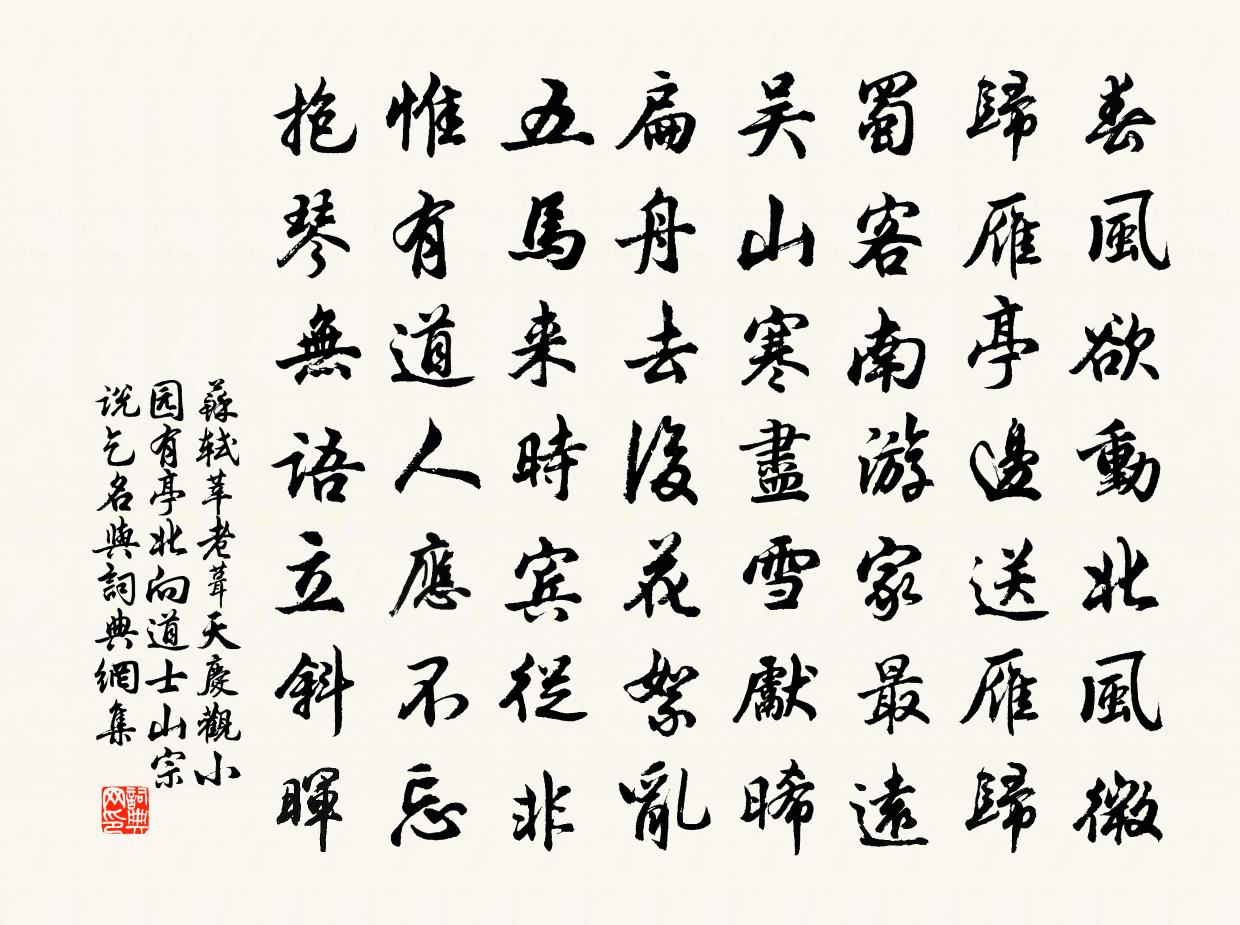 春風欲動北風微
歸雁亭邊送雁歸
蜀客南游家最遠
吴山寒盡雪獻晞
扁舟去後花絮亂
五馬来時宾從非
惟有道人應不忘
抱琴無語立斜暉
蘇轼莘老葺天慶觀小
园有亭北向道士山宗
说乞名與詞典網集
詞典
网印